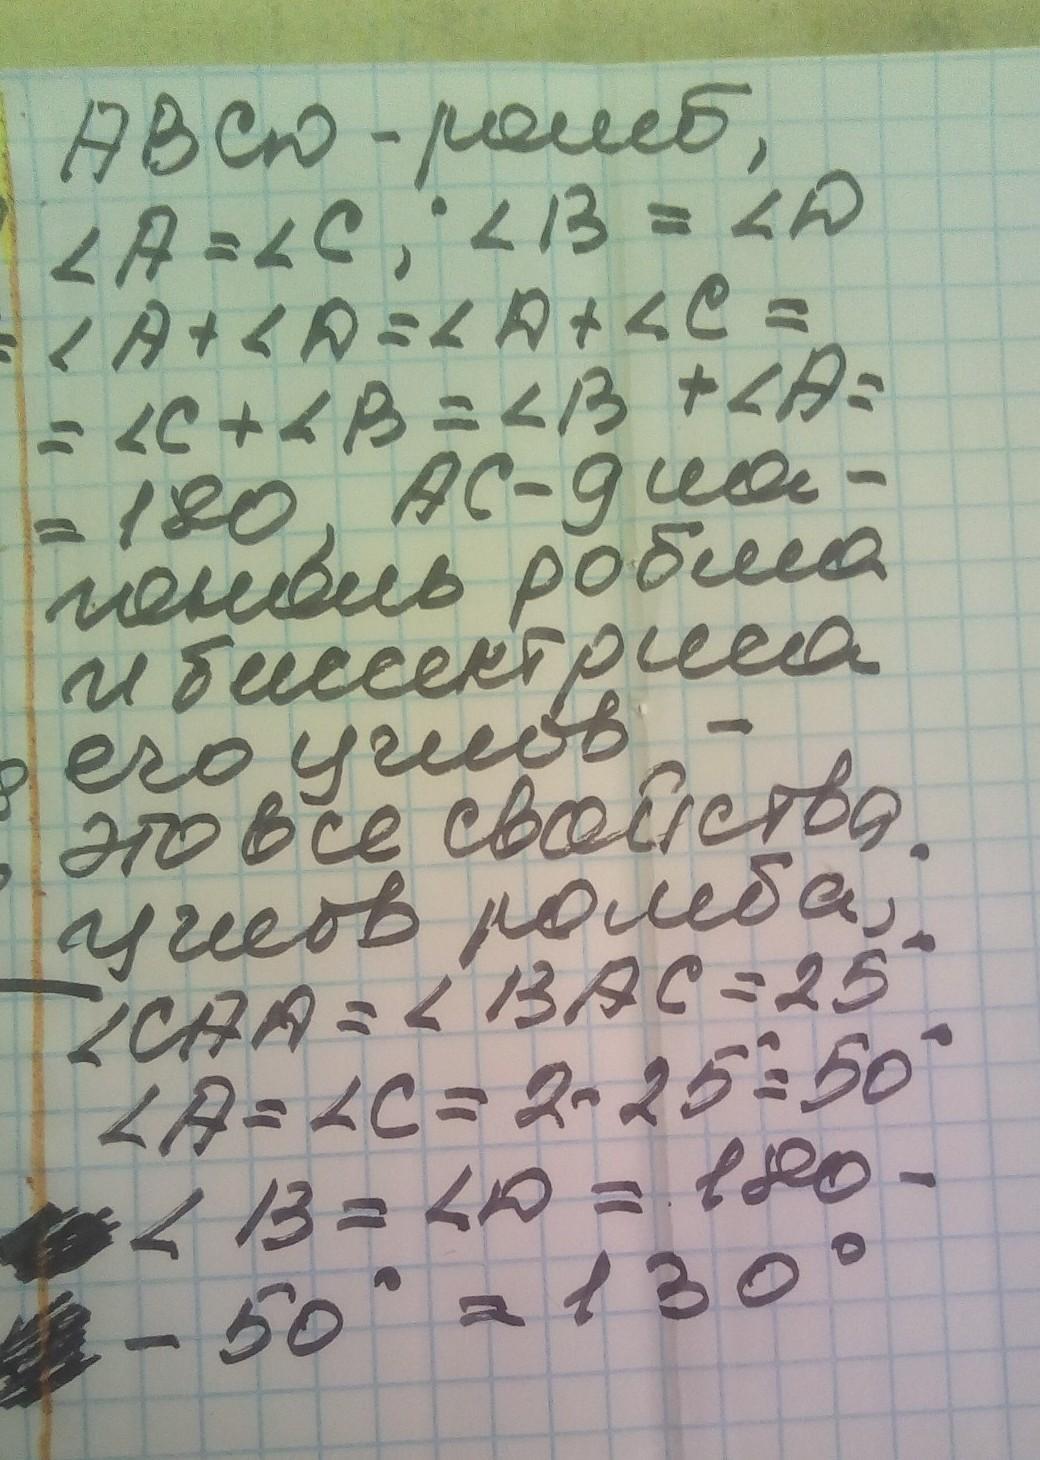 ABCD - ромб,
∠A = ∠C, ∠B = ∠D
= ∠A + ∠D = ∠D + ∠C =
= ∠C + ∠B = ∠B + ∠A =
= 180, AC - диа-
гональ робма
и биссектриса
его углов -
это все свойства
углов ромба;
∠CAD = ∠BAC = 25°
∠A = ∠C = 2 · 25° = 50°
∠B = ∠D = 180 -
- 50° = 130°